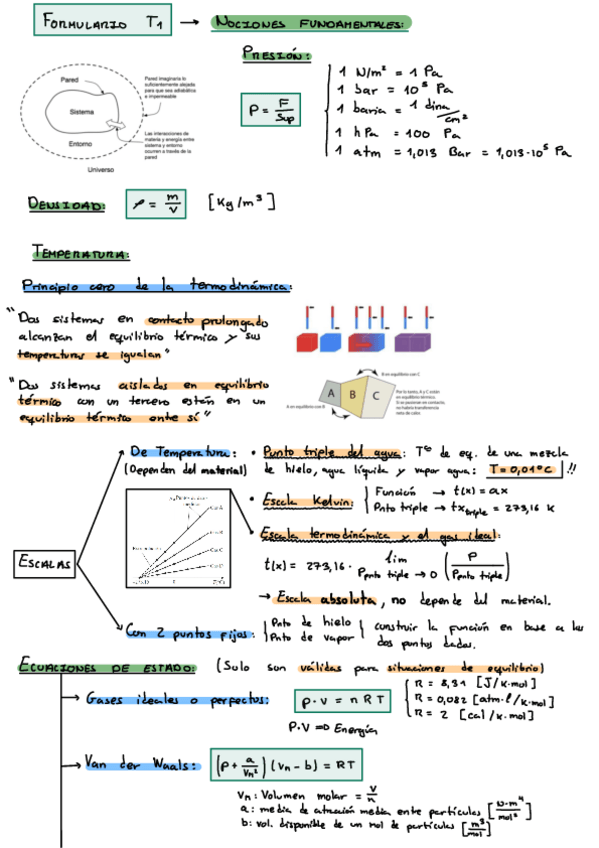 FORMULARIO T1 → NOCIONES FUNDAMENTALES:
PRESIÓN:
P = F/Sup
1 N/m² = 1 Pa
1 bar = 10⁵ Pa
1 baria = 1 dina/cm²
1 hPa = 100 Pa
1 atm = 1,013 Bar = 1,013·10⁵ Pa
Pared
Sistema
Entorno
Universo
Pared imaginaria lo
suficientemente alejada
para que sea adiabática
e impermeable
Las interacciones de
materia y energía entre
sistema y entorno
ocurren a través de la
pared
DENSIDAD: ρ = m/v [Kg/m³]
TEMPERATURA:
Principio cero de la termodinámica:
"Dos sistemas en contacto prolongado
alcanzan el equilibrio térmico y sus
temperaturas se igualan"
"Dos sistemas aislados en equilibrio
térmico con un tercero están en un
equilibrio térmico ente sí"
B en equilibrio con C
A B C
A en equilibrio con B
Por lo tanto, A y C están
en equilibrio térmico.
Si se ponen en contacto,
no habrá transferencia
neta de calor
ESCALAS
De Temperatura:
(Dependen del material)
• Punto triple del agua: Tª de eq. de una mezcla
de hielo, agua líquida y vapor agua: T = 0,01ºC !!
• Escala Kelvin: Función → t(x) = ax
Pnto triple → t x_triple = 273,16 K
• Escala termodinámica y el gas ideal:
t(x) = 273,16 · lim P pnto triple → 0 (P / P pnto triple)
→ Escala absoluta, no depende del material.
Con 2 puntos fijos: Pnto de hielo
Pnto de vapor
construir la función en base a los
dos puntos dados.
ECUACIONES DE ESTADO: (Solo son válidas para situaciones de equilibrio)
→ Gases ideales o perfectos: p·v = nRT
R = 8,31 [J/K·mol]
R = 0,082 [atm·l/K·mol]
R = 2 [cal/K·mol]
P.V => Energía
→ Van der Waals: (p + a/Vn²)(vn - b) = RT
Vn: Volumen molar = V/n
a: media de atracción media entre partículas [N·m⁴/mol²]
b: vol. disponible de un mol de partículas [m³/mol]